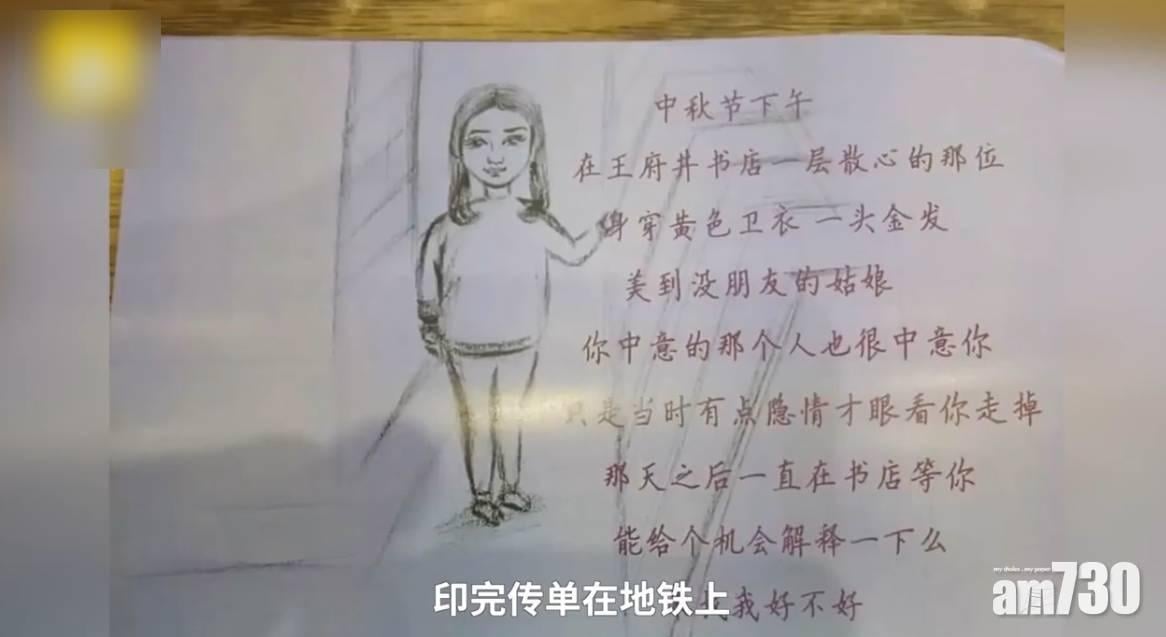 中秋节下午
在王府井书店一层散心的那位
身穿黄色卫衣 一头金发
美到没朋友的姑娘
你中意的那个人也很中意你
只是当时有点隐情才眼看你走掉
那天之后一直在书店等你
能给个机会解释一下么
我好不好
印完传单在地铁上
my choice . my paper
am730